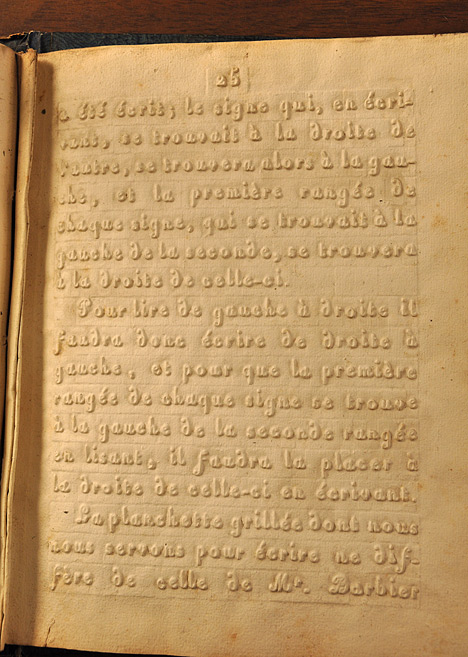 25
a été écrit; le signe qui, en écri-
vant, se trouvait à la droite de
l'autre, se trouvera alors à la gau-
che, et la première rangée de
chaque signe, qui se trouvait à la
gauche de la seconde, se trouvera
à la droite de celle-ci.
Pour lire de gauche à droite il
faudra donc écrire de droite à
gauche, et pour que la première
rangée de chaque signe se trouve
à la gauche de la seconde rangée
en lisant, il faudra la placer à
la droite de celle-ci en écrivant.
La planchette grillée dont nous
nous servons pour écrire ne dif-
fère de celle de Mr. Barbier